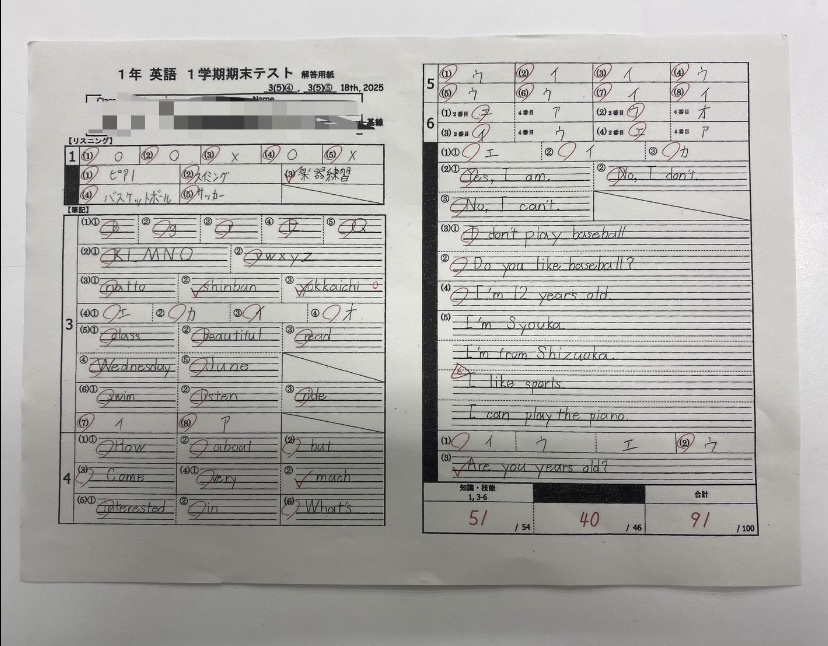 1年 英語 1学期期末テスト 解答用紙
3(5)④, 3(5)⑤ 18th, 2025
Name
【リスニング】
1 (1) ○ (2) ○ (3) × (4) ○ (5) ×
(1) ピアノ (2) スイミング (3) 楽器練習
(4) バスケットボール (5) サッカー
【筆記】
3
(1)① ② g ③ ④ ⑤
(2)① KLMNO ② vwxyz
(3)① natto ② shinban ③ yokkaichi
(4)① エ ② カ ③ イ ④ オ
(5)① class ② beautiful ③ read
④ Wednesday ⑤ June
(6)① swim ② listen ③ ride
(7) イ (8) ア
4
(1)① How ② about (2) but
(3) Come (4)① very ② mach
(5)① interested ② in (6) What's
5 (1) ウ (2) イ (3) イ (4) ウ
(5) ウ (6) ウ (7) イ (8) イ
6 (1) 2番目 4番目 ア (2) 2番目 ウ 4番目 オ
(3) 2番目 イ 4番目 ウ (4) 2番目 エ 4番目 ア
(1)① エ ② イ ③ カ
(2)① Yes, I am. ② No, I don't.
③ No, I can't.
(3)① I don't play baseball
② Do you like baseball?
(4) I'm 12 years old.
(5) I'm Syouka.
I'm from Shizuoka.
6 I like sports.
I can play the piano.
(1) イ ウ エ (2) ウ
(3) Are you years old?
知識・技能 合計
1, 3-6
51 / 54 40 / 46 91 / 100